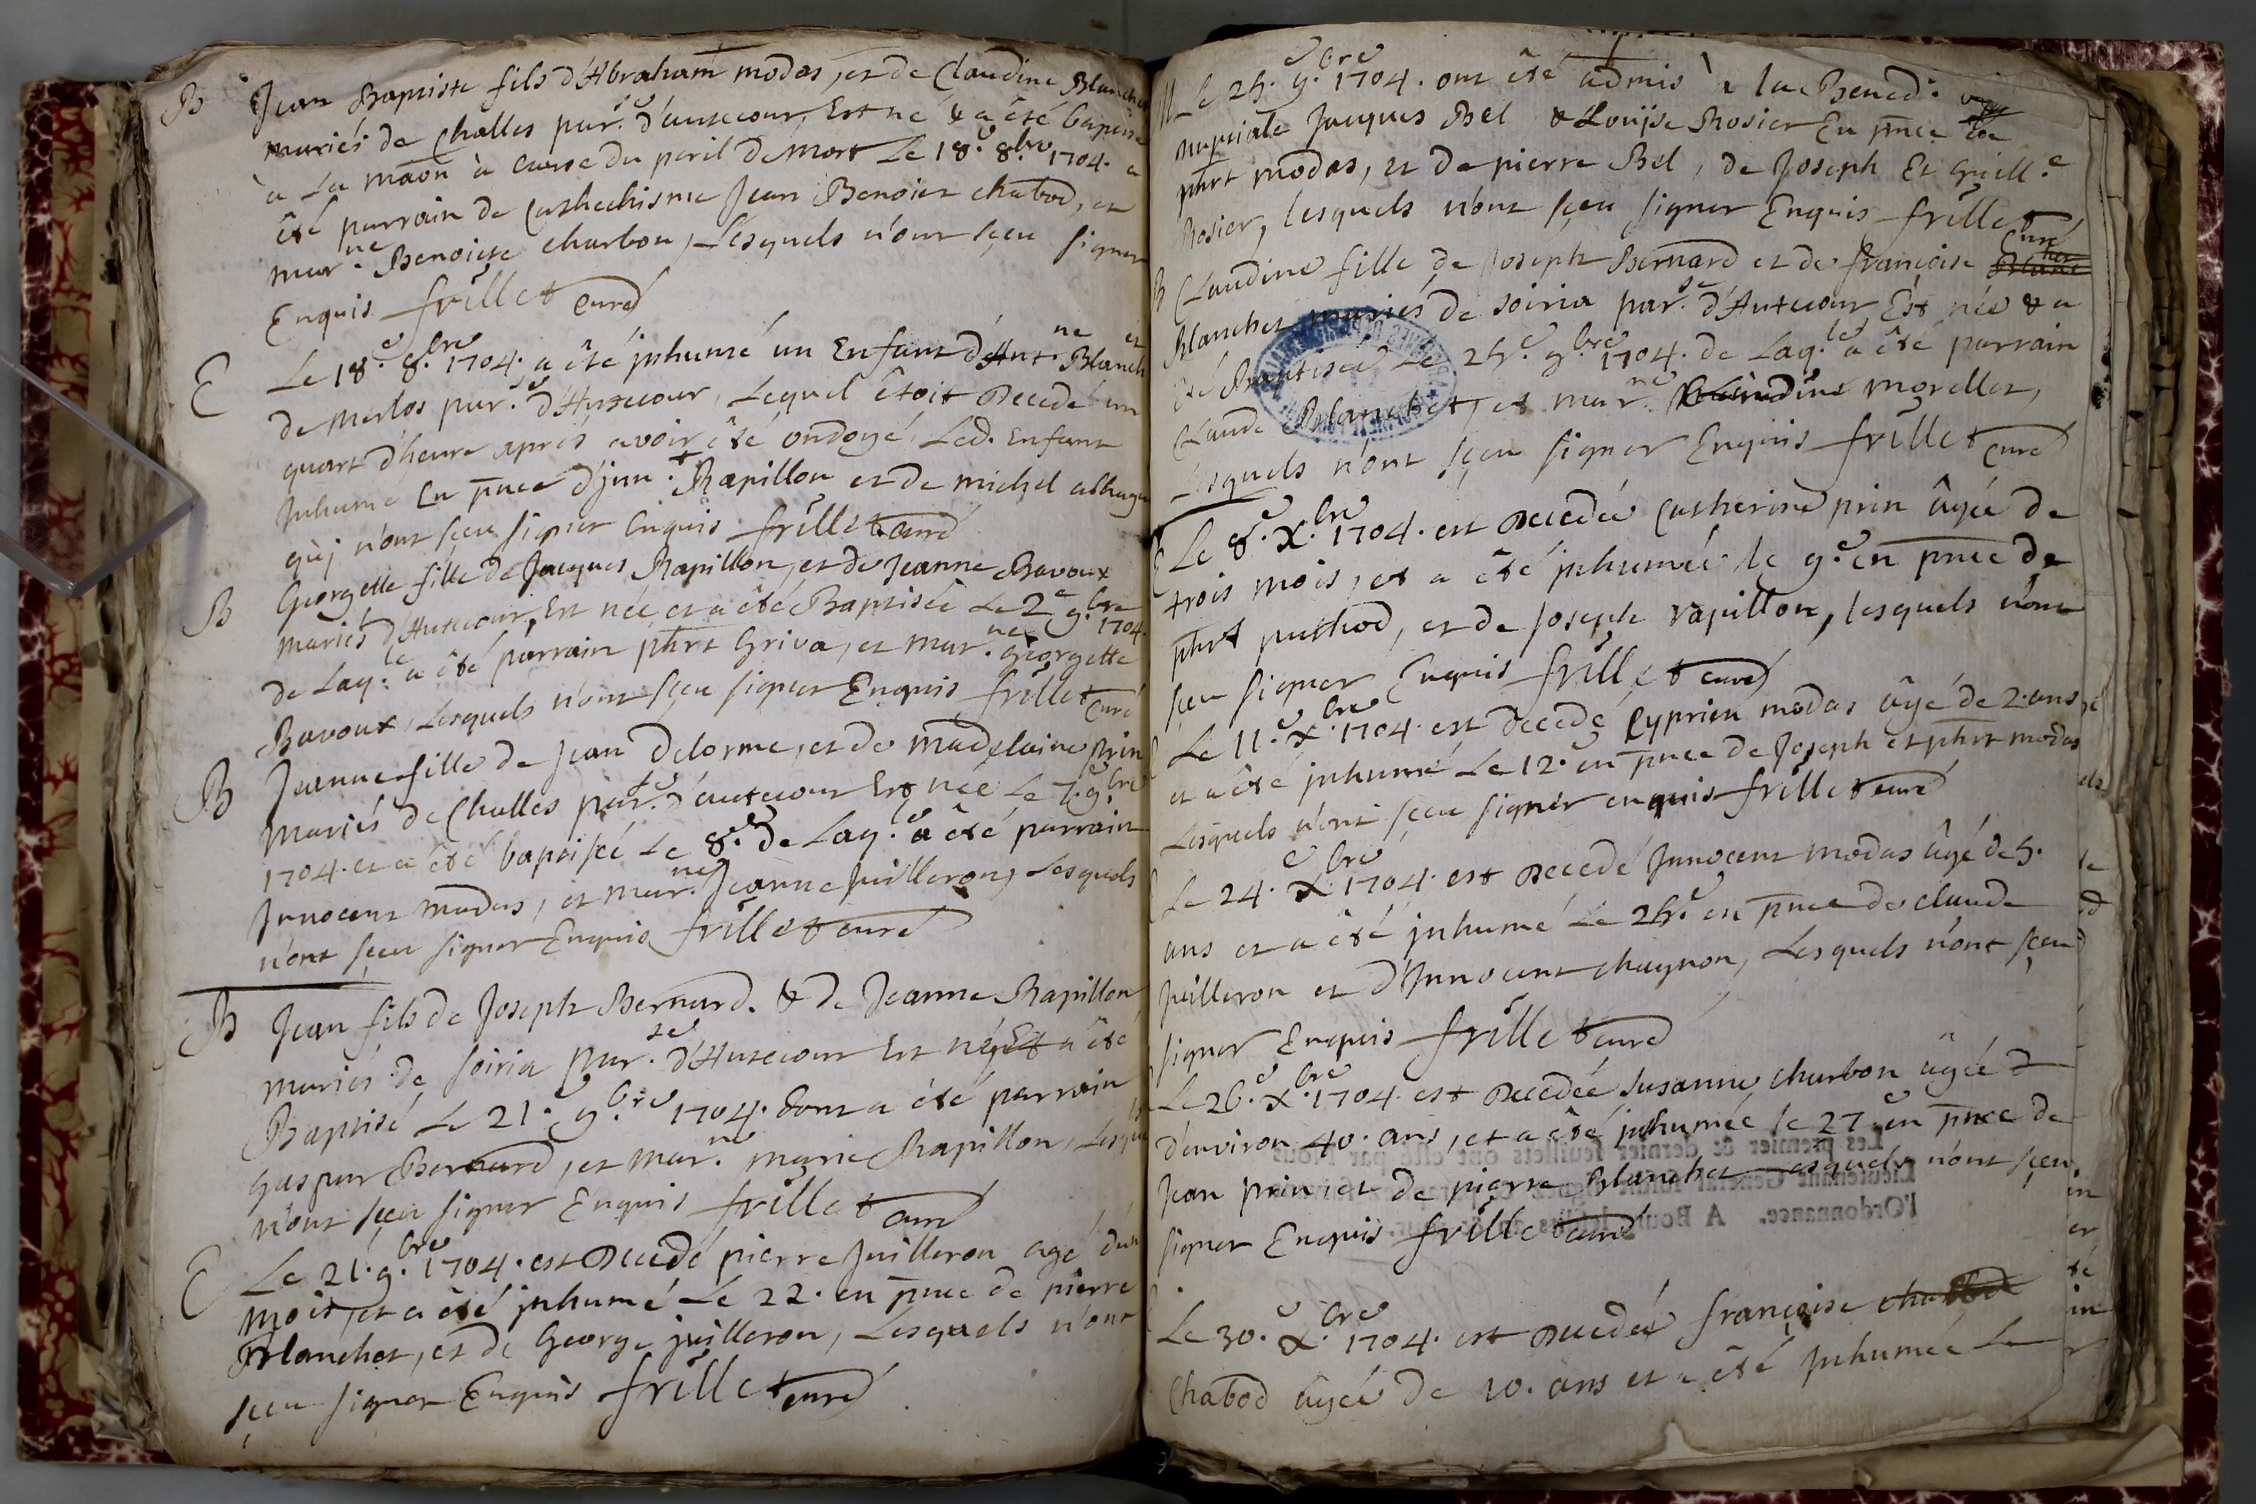 B Jean Baptiste fils d'Abraham modas, et de Claudine Blanchet
mariés de Challes par.se d'autecour, Est né & a été baptisé
à La maōn à cause du peril de Mort Le 18.e 8.bre 1704. a
été parrain de Cathechisme Jean Benoict chabod, et
mar.ne Benoiste charbon, Lesquels n'ont sçeu signer
Enquis frillet curé
E Le 18.e 8.bre 1704. a été jnhumé un Enfant d'Ant.ne Blanchet
de merlos par.se d'Autecour, Lequel étoit Decedé un
quart d'heure aprés avoir été ondoyé, Led. Enfant
jnhumé En pñce d' Rapillon et de michel
quj n'ont sçeu signer Enquis frillet curé
B Georgette fille de Jacques Rapillon, et de Jeanne Bavoux
mariés d'Autecour, Est née et a été Baptisée Le 2.e 9.bre 1704.
de Laq.le a été parrain phrt Griva, et mar.ne Georgette
Bavoux, Lesquels n'ont sçeu signer Enquis frillet curé
B Jeanne fille de Jean Delorme, et de madelaine prin
mariés de Challes par.se d'autecour Est née Le 7.e 9.bre
1704. et a été baptisée Le 8.e de Laq.le a été parrain
Jnnocent modas, et mar.ne Jeanne Juilleron, Lesquels
n'ont sçeu signer Enquis frillet curé
B Jean fils de Joseph Bernard. & de Jeanne Rapillon
mariés de soiria par.se d'Autecour Est né, Et a été
Baptisé Le 21.e 9.bre 1704. dont a été parrain
Gaspar Bernard, et mar.ne marie Rapillon, Lesquels
n'ont sçeu signer Enquis frillet curé
E Le 21. 9.bre 1704. est Decedé pierre Juilleron agé d'un
mois, et a été jnhumé Le 22. en pñce de pierre
Blanchet, et de George juilleron, Lesquels n'ont
sçeu signer Enquis frillet curé
M Le 25.e 9.bre 1704. ont été admis à la Bened.
nuptiale Jacques Bel & Louïse Rosier En pñce de
phrt modas, et de pierre Bel, de Joseph Et Guill.e
Rosier, lesquels n'ont sçeu signer Enquis frillet
curé
B Claudine fille de Joseph Bernard et de françoise
Blanchet mariés de soiria par.se d'Autecour Est née & a
été Baptisée Le 25.e 9.bre 1704. de Laq.le a été parrain
Claude Blanchet, et mar.ne Claudine morellet,
Lesquels n'ont sçeu signer Enquis frillet curé
E Le 8.e X.bre 1704. est Decedée Catherine prin âgée de
trois mois, et a été jnhumée le 9.e en pñce de
phrt puthod, et de Joseph rapillon, lesquels n'ont
sçeu signer Enquis frillet curé
Le 11.e X.bre 1704. est decedé Cyprien modas âgé de 2. ans
et a été jnhumé Le 12. en pñce de Joseph et phrt modas
Lesquels n'ont sçeu signer enquis frillet curé
Le 24.e X.bre 1704. est Decedé Jnnocent modas âgé de 5.
ans et a été jnhumé Le 25.e en pñce de claude
Juilleron et d'Jnnocent chagnon, Lesquels n'ont sçeu
signer Enquis frillet curé
Le 26.e X.bre 1704. est Decedée susanne charbon âgée
d'environ 40. ans, et a été jnhumée le 27.e en pñce de
Jean prin, et de pierre Blanchet Lesquels n'ont sçeu
signer Enquis frillet curé
Le 30.e X.bre 1704. est Decedée françoise chabod
Chabod âgée De 10. ans et a été Jnhumée Le